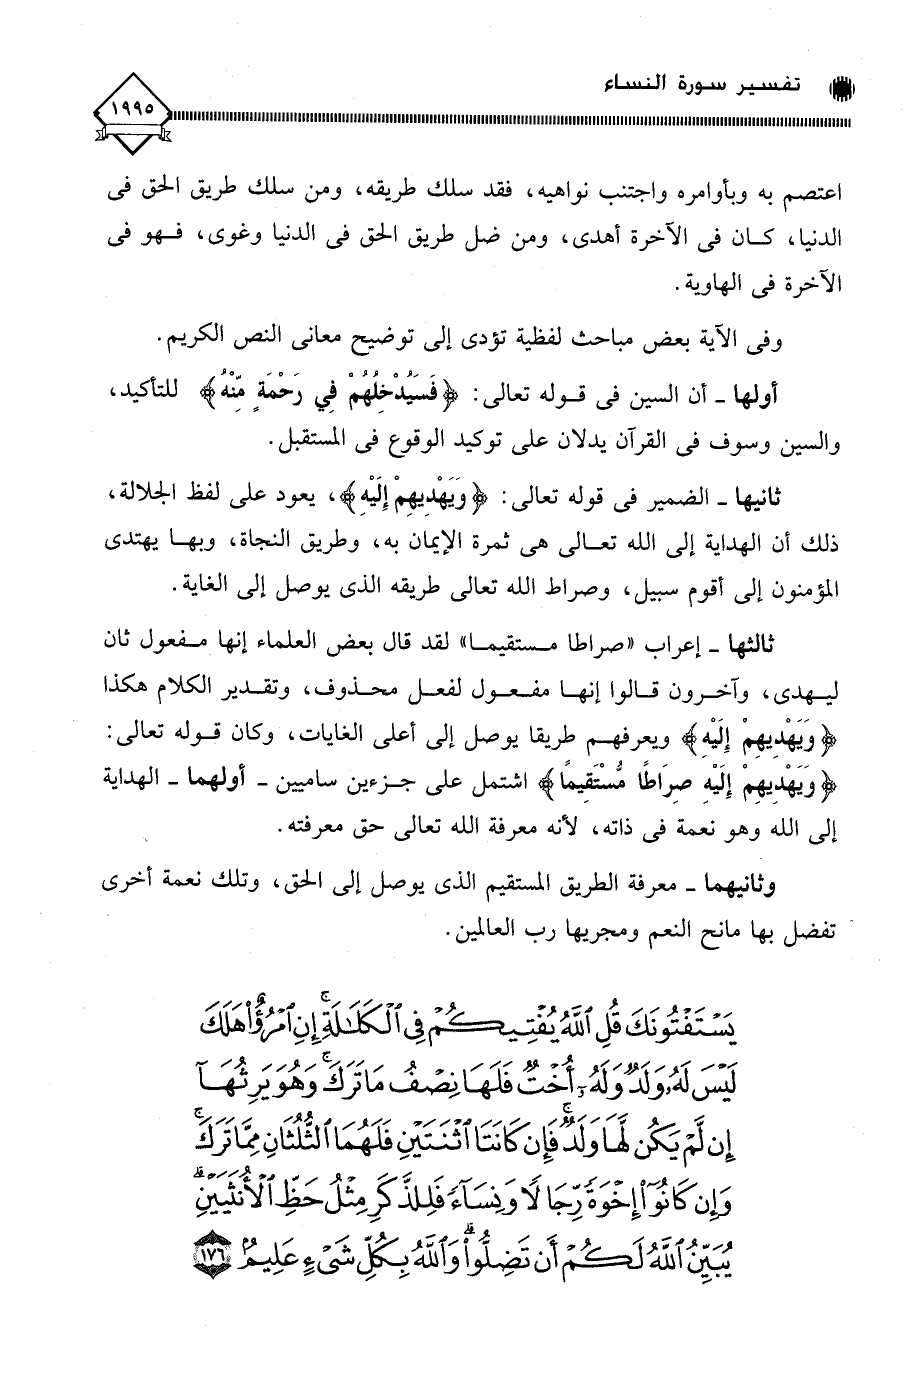 تفسير سورة النساء
١٩٩٥
اعتصم به وبأوامره واجتنب نواهيه، فقد سلك طريقه، ومن سلك طريق الحق فى
الدنيا، كان فى الآخرة أهدى، ومن ضل طريق الحق فى الدنيا وغوى، فهو فى
الآخرة فى الهاوية.
وفى الآية بعض مباحث لفظية تؤدى إلى توضيح معانى النص الكريم.
أولها ـ أن السين فى قوله تعالى: ﴿فَسَيُدْخِلُهُمْ فِي رَحْمَةٍ مِّنْهُ﴾ للتأكيد،
والسين وسوف فى القرآن يدلان على توكيد الوقوع فى المستقبل.
ثانيها ـ الضمير فى قوله تعالى: ﴿وَيَهْدِيهِمْ إِلَيْهِ﴾، يعود على لفظ الجلالة،
ذلك أن الهداية إلى الله تعالى هى ثمرة الإيمان به، وطريق النجاة، وبها يهتدى
المؤمنون إلى أقوم سبيل، وصراط الله تعالى طريقه الذى يوصل إلى الغاية.
ثالثها ـ إعراب «صراطا مستقيما» لقد قال بعض العلماء إنها مفعول ثان
ليهدى، وآخرون قالوا إنها مفعول لفعل محذوف، وتقدير الكلام هكذا
﴿وَيَهْدِيهِمْ إِلَيْهِ﴾ ويعرفهم طريقا يوصل إلى أعلى الغايات، وكان قوله تعالى:
﴿وَيَهْدِيهِمْ إِلَيْهِ صِرَاطًا مُّسْتَقِيمًا﴾ اشتمل على جزءين ساميين ـ أولهما ـ الهداية
إلى الله وهو نعمة فى ذاته، لأنه معرفة الله تعالى حق معرفته.
وثانيهما ـ معرفة الطريق المستقيم الذى يوصل إلى الحق، وتلك نعمة أخرى
تفضل بها مانح النعم ومجريها رب العالمين.
يَسْتَفْتُونَكَ قُلِ ٱللَّهُ يُفْتِيكُمْ فِى ٱلْكَلَٰلَةِ ۚ إِنِ ٱمْرُؤٌا۟ هَلَكَ
لَيْسَ لَهُۥ وَلَدٌ وَلَهُۥٓ أُخْتٌ فَلَهَا نِصْفُ مَا تَرَكَ ۚ وَهُوَ يَرِثُهَآ
إِن لَّمْ يَكُن لَّهَا وَلَدٌ ۚ فَإِن كَانَتَا ٱثْنَتَيْنِ فَلَهُمَا ٱلثُّلُثَانِ مِمَّا تَرَكَ ۚ
وَإِن كَانُوٓا۟ إِخْوَةً رِّجَالًا وَنِسَآءً فَلِلذَّكَرِ مِثْلُ حَظِّ ٱلْأُنثَيَيْنِ ۗ
يُبَيِّنُ ٱللَّهُ لَكُمْ أَن تَضِلُّوا۟ ۗ وَٱللَّهُ بِكُلِّ شَىْءٍ عَلِيمٌۢ ١٧٦